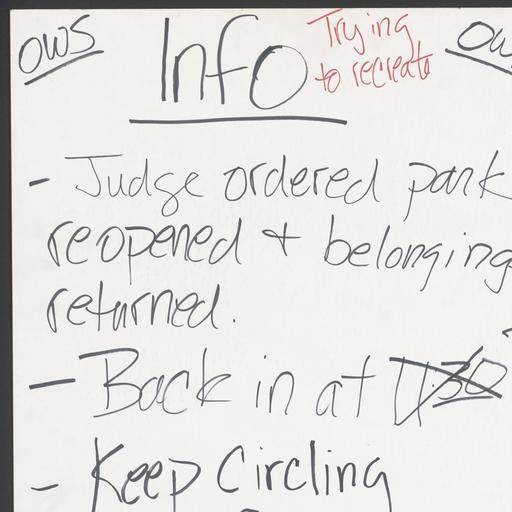 OWS Info Trying to recreate OW
- Judge ordered park
reopened + belonging
returned.
- Back in at
- Keep Circling